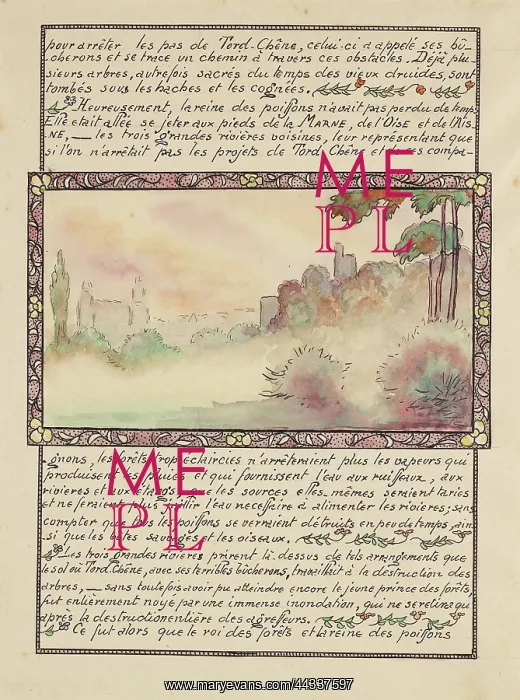 pour arrêter les pas de Tord-Chêne, celui-ci a appelé ses bû-
cherons et se trace un chemin à travers ces obstacles. Déjà plu-
sieurs arbres, autrefois sacrés du temps des vieux druides, sont
tombés sous les haches et les cognées.
Heureusement, la reine des poissons n'avait pas perdu de temps.
Elle était allée se jeter aux pieds de la MARNE, de l'OISE et de l'AIS-
NE, — les trois grandes rivières voisines, leur représentant que
si l'on n'arrêtait pas les projets de Tord Chêne et de ses compa-
ME
PL
gnons, les forêts trop éclaircies n'arrêteraient plus les vapeurs qui
produisent les pluies et qui fournissent l'eau aux ruisseaux, aux
rivières et aux étangs; que les sources elles-mêmes seraient taries
et ne feraient plus jaillir l'eau nécessaire à alimenter les rivières; sans
compter que tous les poissons se verraient détruits en peu de temps, ain-
si que les bêtes sauvages et les oiseaux.
ME
PL
Les trois grandes rivières prirent là-dessus de tels arrangements que
le sol où Tord Chêne, avec ses terribles bûcherons, travaillait à la destruction des
arbres, — sans toutefois avoir pu atteindre encore le jeune prince des forêts,
fut entièrement noyé par une immense inondation, qui ne se retira qu'
après la destruction entière des agresseurs.
Ce fut alors que le roi des forêts et la reine des poissons
www.maryevans.com/44997597